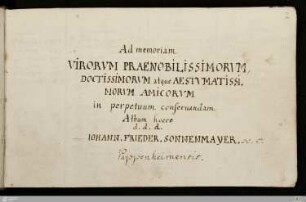 Ad memoriam
VIRORVM PRAENOBILISSIMORVM,
DOCTISSIMORVM atque AESTVMATISSI-
MORVM AMICORVM
in perpetuum conservandam.
Album hocce
d. d. d.
IOHANN. FRIEDER. SONNENMAYER,
Pappenheimensis.